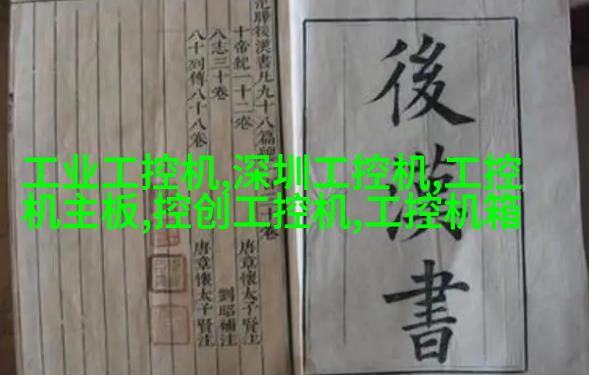 工业工控机,深圳工控机,工控
机主板,控创工控机,工控机箱
後漢書
曄後漢書凡九十八篇
十帝紀一十二卷 唐章懷太子賢注
八志三十卷 劉昭補注
八十列傳八十八卷 唐章懷太子賢注